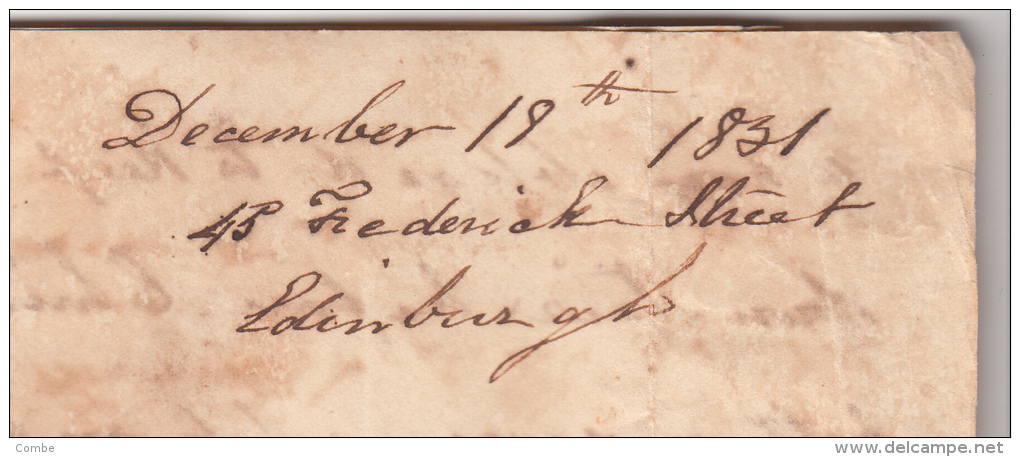 December 19th 1831
45 Frederick Street
Edinburgh
Combe
www.delcampe.net